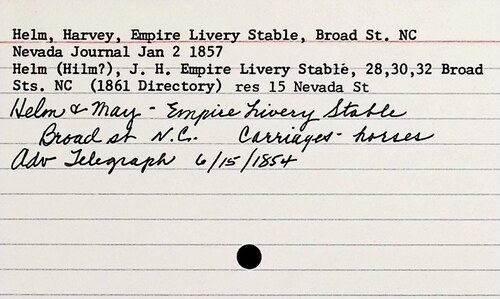 Helm, Harvey, Empire Livery Stable, Broad St. NC
Nevada Journal Jan 2 1857
Helm (Hilm?), J. H. Empire Livery Stable, 28,30,32 Broad
Sts. NC (1861 Directory) res 15 Nevada St
Helm & May - Empire Livery Stable
Broad st N.C. Carriages - horses
Adv Telegraph 6/15/1854